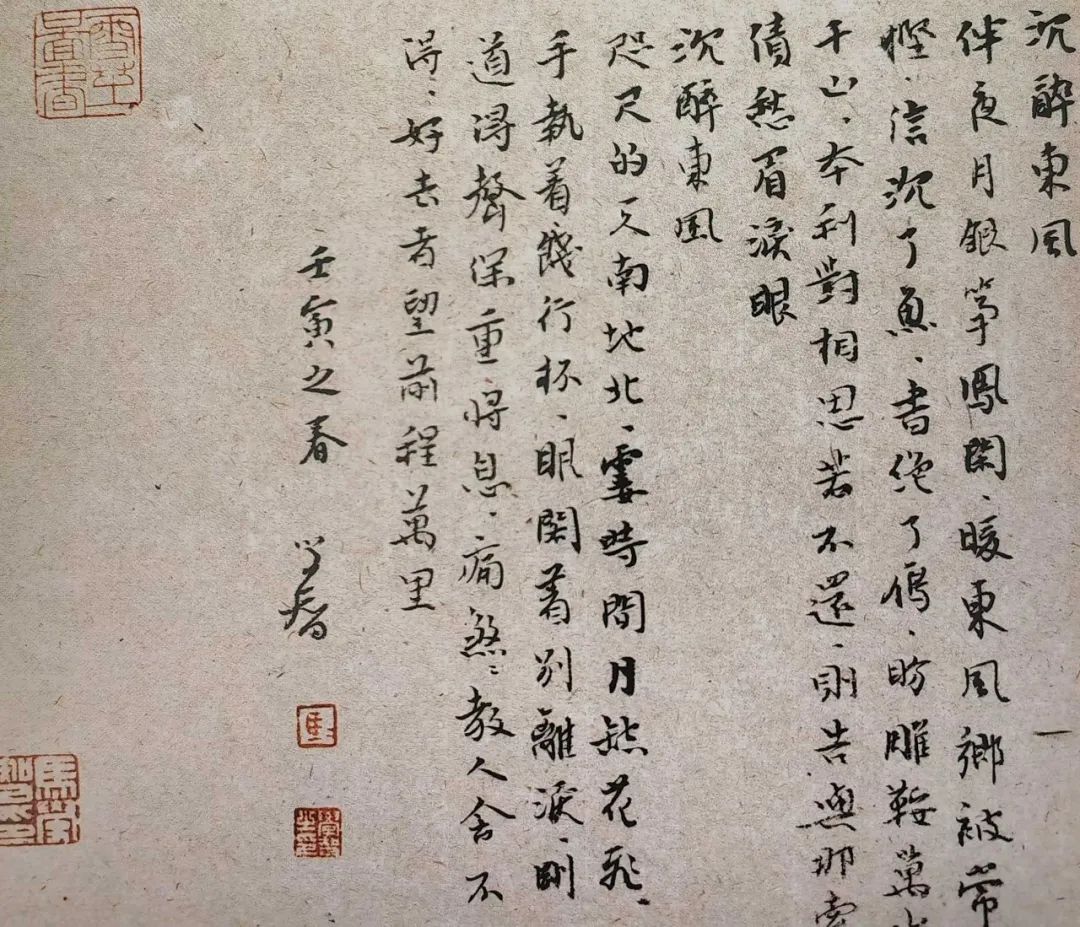 沉醉東風
伴夜月銀箏鳳閑、暖東風鄉被常
慳、信沉了魚、書絕了鴈、盼雕鞍萬水
千山、本利對相思若不還、則告與那索
債愁眉淚眼
沉醉東風
咫尺的天南地北、霎時間月缺花飛、
手執着餞行杯、眼閣着別離淚、剛
道得聲保重將息、痛煞〻教人舍不
得〻好去者望前程萬里
壬寅之春 學智
馬